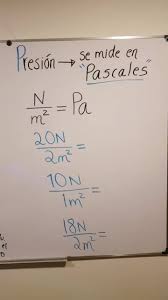 Presión → se mide en
"Pascales"
N/m² = Pa
20N/2m² =
10N/1m² =
18N/2m² =